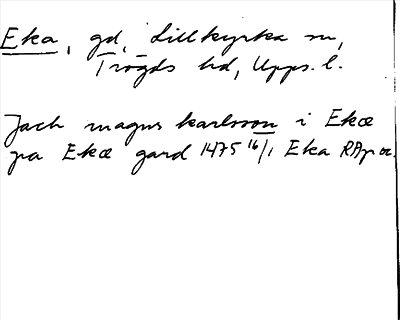 Eka, gd, Lillkyrka sn,
Trögds hd, Upps. l.
Jach magnus karlsson i Ekæ
pa Ekæ gard 1475 16/1 Eka RAp or.